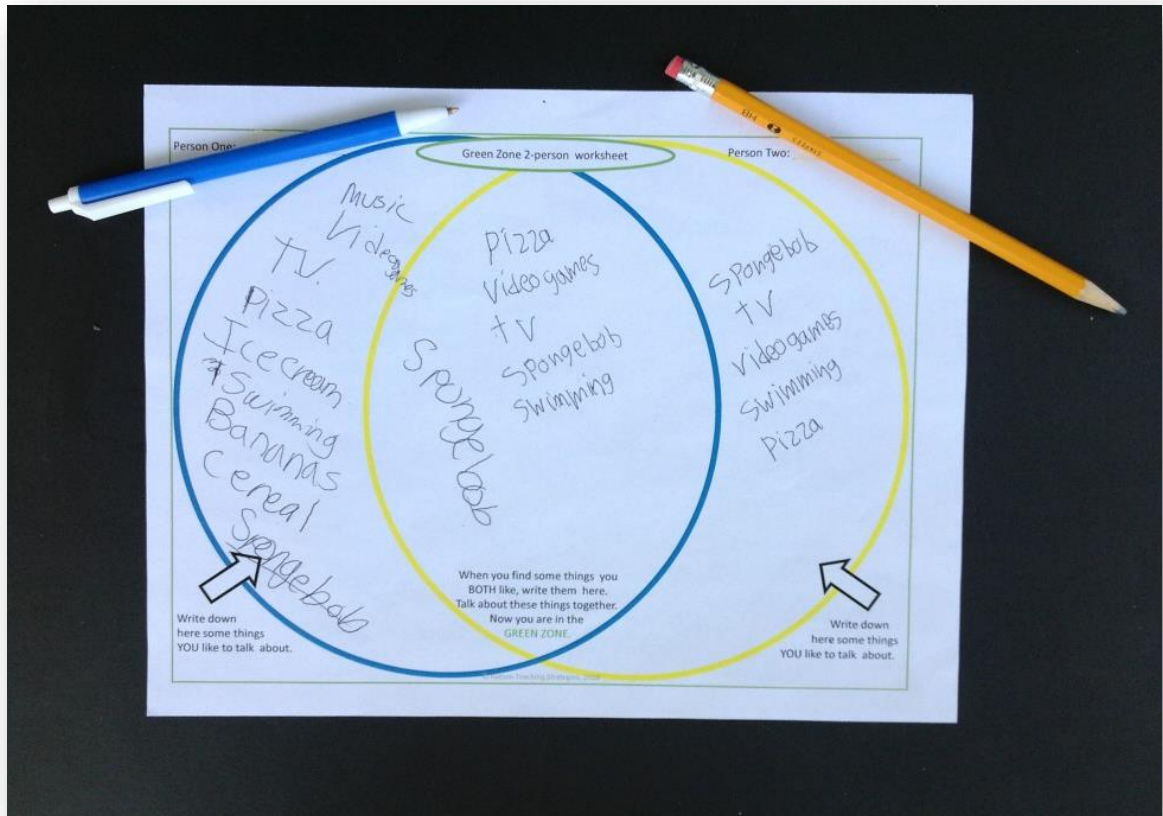 Person One:
Green Zone 2-person worksheet
Person Two:
Music
Videogames
TV.
Pizza
Icecream
Swimming
Bananas
Cereal
Spongebob
Pizza
Videogames
tV
Spongebob
Swimming
Spongebob
Spongebob
tV
videogames
Swimming
Pizza
Write down
here some things
YOU like to talk about.
When you find some things you
BOTH like, write them here.
Talk about these things together.
Now you are in the
GREEN ZONE.
Write down
here some things
YOU like to talk about.